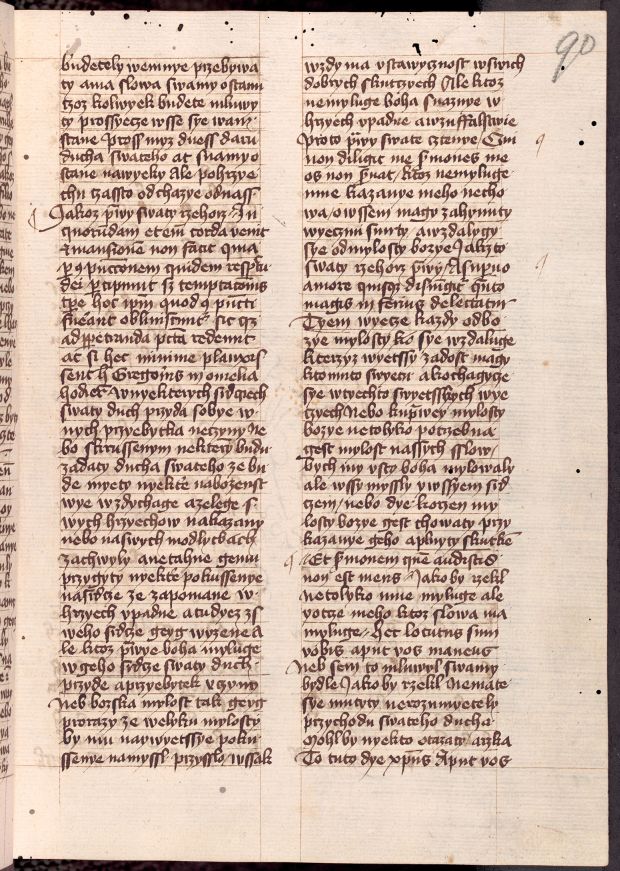 90
budetely wemnye przebywa
ty ama slowa swamy ostanu
czoz kolwyek budete mluwy
ty prossyecze wsse sye wam
stane Pross myz dness daru
ducha swateho at snamy o
stane nawyeky Ale pohrzye
chu czasto odchazye odnass
Jakoz prwy swaty rzehorz In
quorundam etem corda venit
et mansionem non facit quia
dei percipiunt sz temptationis
tpe hoc ipm quod
sic qz
ad perpetranda pcta redeunt
ac si hec minime planxis
sent h Gregorius in omelia
hodier Wnyekterych srdczech
swaty duch przyda sobye w
nych przebytka neczyny Ne
bo skrussenym nekterzy budu
zadaty ducha swateho ze bu
de myety nyekte nabozenst
wye wzdychage azelege s
wych hrzyechow nakazany
nebo naswych modlytbach
zachwyly anetahne gemu
przygyty nyekte pokussenye
nasrdze ze zapomane w
hrzyech vpadne atudyez zs
weho srdze geyg wyzene A
le ktoz prwye boha myluge
wgeho srdze swaty duch
przyde aprzybytek vczyny
Neb bozska mylost tak geyg
prorazy ze welyku mylosty
by mu naywyetssye poku
ssenye namyssl przysslo wssak
wzdy ma vstawycznost wswich
dobrych skutczych Ale ktoz
nemyluge boha snaznye w
hrzyech vpadne awzuffalstwie
Proto prwy swate cztenye Qui
non diligit me sermones me
os non seruat, ktoz nemyluge
mne kazanye meho necho
wa owssem magy zahynuty
wyecznu smrty awzdalygy
sye odmylosty bozye Jakzto
swaty rzehorz prwy A supuo
amore quisqz disiungit quanto
magis inferius delectatur
Tyem wyecze kazdy odbo
zye mylosty ko sye wzdaluge
kterzyz wyetssy zadost magy
ktomuto swyetu akochagyge
sye wtyechto swyetsskych wye
czech Nebo mylosty
bozye netolyko potrzebna
gest mylost nassych sslow
bych my vsty boha mylowaly
ale wssy myssly ywssyem srd
czem nebo dye kotzen my
losty bozye gest chowaty przy
kazanye geho aplnyty skutkem
Et sermonem quem audistis
non est meus Jako by rzekl
Netolyko mne myluge ale
votcze meho ktoz slowa ma
myluge hec locutus sum
vobis apud vos manens
Neb sem to mluwyl swamy
bydle Jako by rzekl Nemate
sye mutyty nerozumyetely
przychodu swateho ducha
Mohl by nyekto otazaty arzka
To tuto dye xpus Apud vos